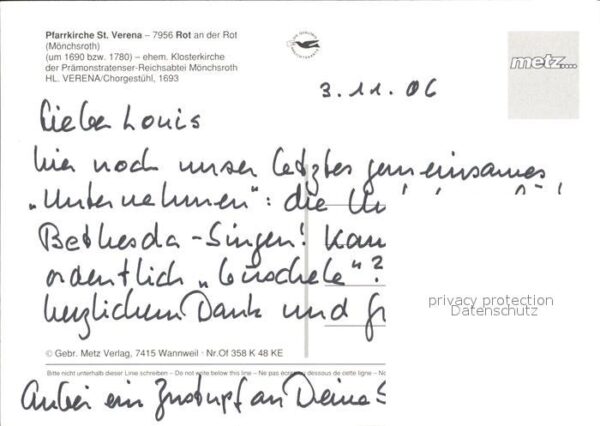 Pfarrkirche St. Verena – 7956 Rot an der Rot
(Mönchsroth)
(um 1690 bzw. 1780) – ehem. Klosterkirche
der Prämonstratenser-Reichsabtei Mönchsroth
HL. VERENA/Chorgestühl, 1693
metz
3.11.06
Lieber Louis
hier noch unser letztes gemeinsames
„Unternehmen“: die
Bethesda-Singen!
ordentlich
herzlichem Dank und
privacy protection
Datenschutz
© Gebr. Metz Verlag, 7415 Wannweil · Nr. Of 358 K 48 KE
Bitte nicht unterhalb dieser Linie schreiben – Do not write below this line – Ne pas écrire au dessous de cette ligne – Nc
Anbei ein Zustupf an Deine